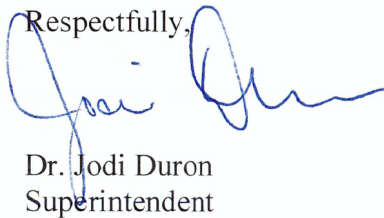 Respectfully,
Jodi Duron
Dr. Jodi Duron
Superintendent